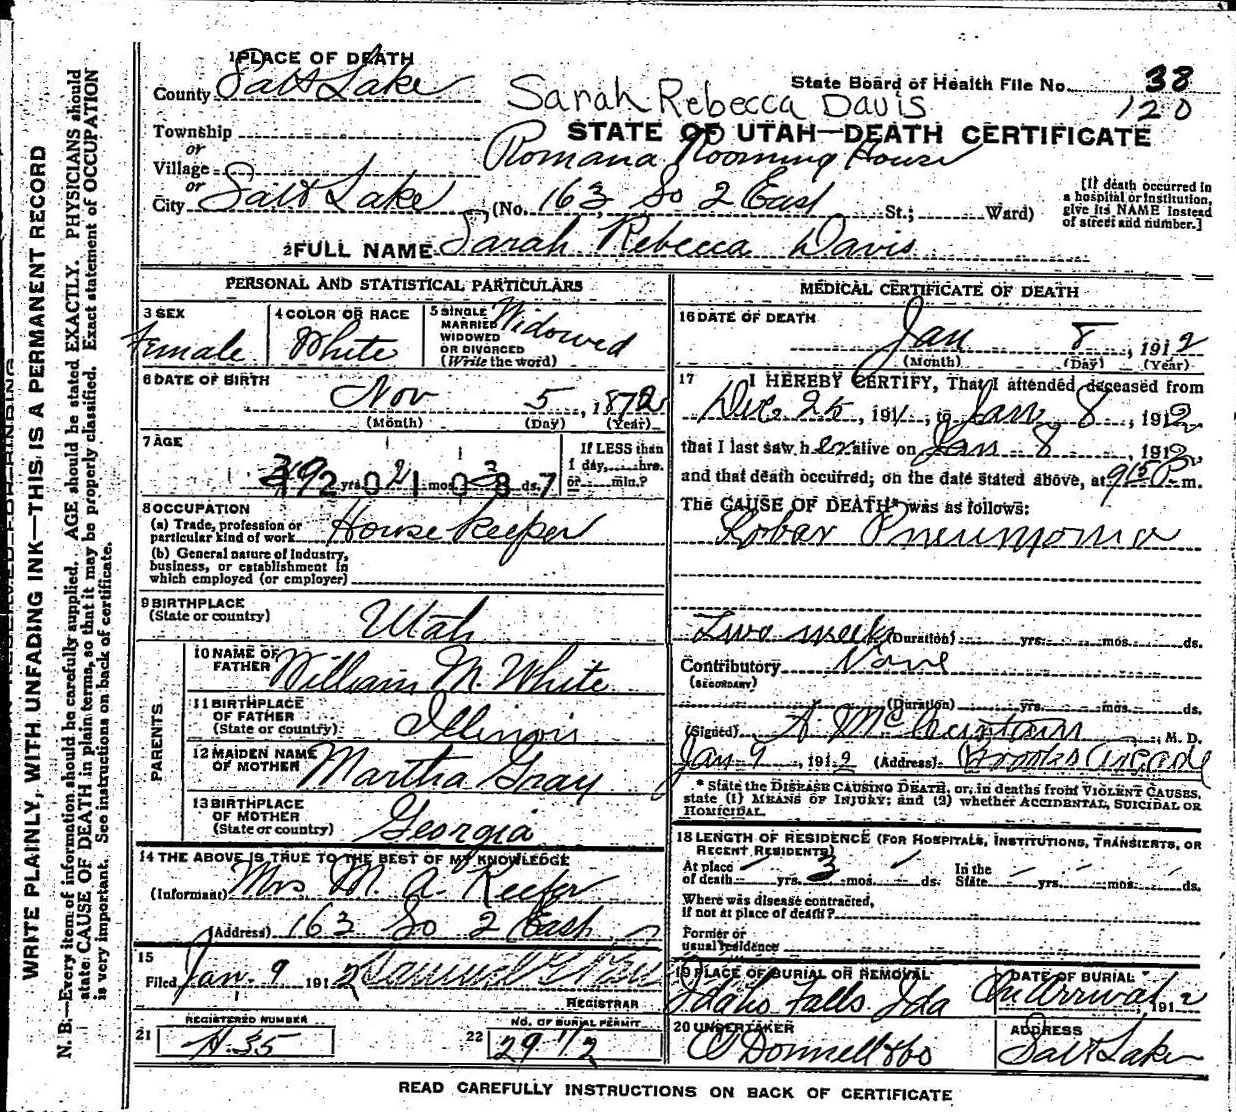 WRITE PLAINLY, WITH UNFADING INK—THIS IS A PERMANENT RECORD
N. B.—Every item of information should be carefully supplied. AGE should be stated EXACTLY. PHYSICIANS should
state CAUSE OF DEATH in plain terms, so that it may be properly classified. Exact statement of OCCUPATION
is very important. See instructions on back of certificate.
1 PLACE OF DEATH
County Salt Lake
State Board of Health File No. 38
120
Sarah Rebecca Davis
STATE OF UTAH—DEATH CERTIFICATE
Township
or
Village
or
City Salt Lake
Romana Rooming House
(No. 163 So 2 East St.; Ward)
[If death occurred in
a hospital or institution,
give its NAME instead
of street and number.]
2 FULL NAME Sarah Rebecca Davis
PERSONAL AND STATISTICAL PARTICULARS
3 SEX
Female
4 COLOR OR RACE
White
5 SINGLE
MARRIED
WIDOWED
OR DIVORCED
(Write the word)
Widowed
6 DATE OF BIRTH
Nov 5, 1872
(Month) (Day) (Year)
7 AGE
39 yrs 2 mos 3 ds.
If LESS than
1 day, hrs.
or min.?
8 OCCUPATION
(a) Trade, profession or
particular kind of work House Keeper
(b) General nature of industry,
business, or establishment in
which employed (or employer)
9 BIRTHPLACE
(State or country)
Utah
PARENTS
10 NAME OF
FATHER
William M. White
11 BIRTHPLACE
OF FATHER
(State or country)
Illinois
12 MAIDEN NAME
OF MOTHER
Martha Gray
13 BIRTHPLACE
OF MOTHER
(State or country)
Georgia
14 THE ABOVE IS TRUE TO THE BEST OF MY KNOWLEDGE
(Informant) Mrs M. A. Keefer
(Address) 163 So 2 East
15
Filed Jan. 9 1912 Samuel G
REGISTRAR
21 REGISTERED NUMBER
H 35
22 NO. OF BURIAL PERMIT
29 1/2
MEDICAL CERTIFICATE OF DEATH
16 DATE OF DEATH
Jan 8, 1912
(Month) (Day) (Year)
17 I HEREBY CERTIFY, That I attended deceased from
Dec 25, 1911, to Jan 8, 1912,
that I last saw her alive on Jan 8, 1912,
and that death occurred, on the date stated above, at 9 15 P m.
The CAUSE OF DEATH* was as follows:
Lobar Pneumonia
Two weeks (Duration) yrs. mos. ds.
Contributory None
(SECONDARY)
(Duration) yrs. mos. ds.
(Signed) A. M., M. D.
Jan 9, 1912 (Address) Brooks Arcade
* State the DISEASE CAUSING DEATH, or, in deaths from VIOLENT CAUSES,
state (1) MEANS OF INJURY; and (2) whether ACCIDENTAL, SUICIDAL OR
HOMICIDAL.
18 LENGTH OF RESIDENCE (FOR HOSPITALS, INSTITUTIONS, TRANSIENTS, OR
RECENT RESIDENTS)
At place
of death yrs. 3 mos. ds. In the
State yrs. mos. ds.
Where was disease contracted,
if not at place of death?
Former or
usual residence
19 PLACE OF BURIAL OR REMOVAL
Idaho Falls. Ida
DATE OF BURIAL
On Arrival, 1912
20 UNDERTAKER
O'Donnell & Co
ADDRESS
Salt Lake
READ CAREFULLY INSTRUCTIONS ON BACK OF CERTIFICATE